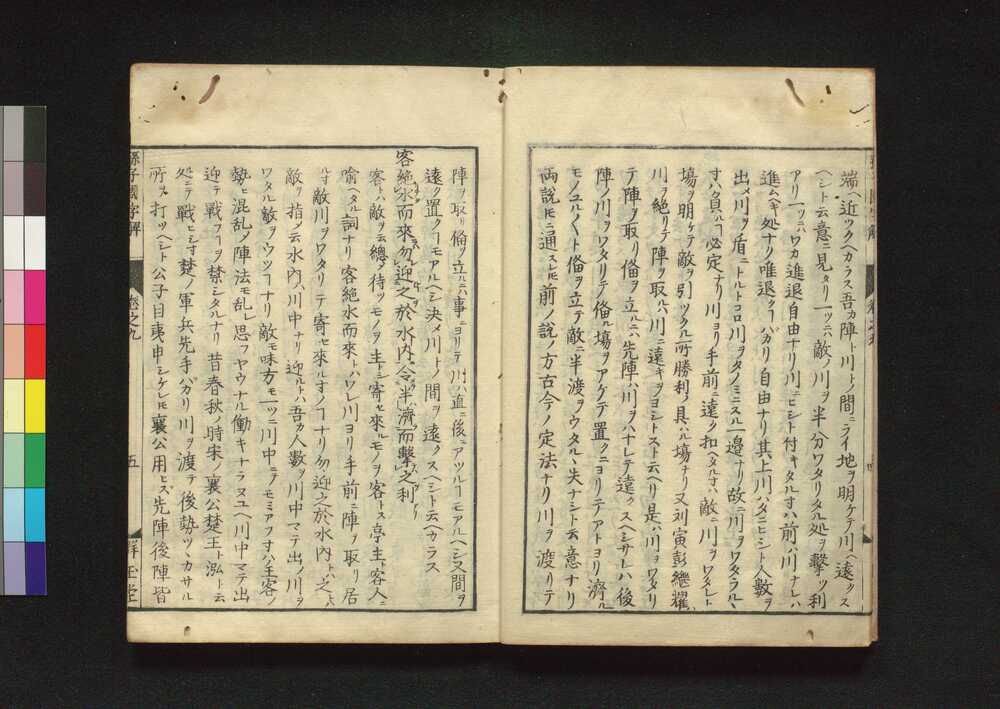 端ヘ近ツクヘカラス吾カ陣ト川トノ間ニライ地ヲ明ケテ川ヘ遠クス
ヘシト云意ニ見タリ一ツニハ敵ノ川ヲ半分ワタリタル処ヲ擊ツ利
アリ一ツニハワカ進退自由ナリ川ニヒシト付キタルオハ前ハ川ナレハ
進ムヘキ処ナリ唯退クヿハカリ自由ナリ其上川ハタニヒシト人數ヲ
出メ川ヲ盾ニトルトコロ川ヲタノミニスル一邊ナリ故ニ川ヲワタラル、
オハ負ルヿ必定ナリ川ヨリ手前ニ遠ク扣ヘタルオハ敵ニ川ヲワタレト
塲ヲ明ケテ敵ヲ引ツクル所勝利ノ具ハル塲ナリ又刘寅彭繼耀ハ
川ヲ絶リテ陣ヲ取ルハ川ニ遠キヲヨシトスト云ヘリ是ハ川ヲワタリ
テ陣ヲ取リ偹ヲ立ルニハ先陣ハ川ヲハナレテ遠クスヘシサレハ後
陣ノ川ヲワタリテ偹ル塲ヲアケテ置クニヨリテアトヨリ濟ル
モノユル〱ト偹ヲ立テ敵ニ半渡ヲウタル、失ナシト云意ナリ
両説𪜈ニ通スレ𪜈前ノ説ノ方古今ノ定法ナリ川ヲ渡リテ
陣ヲ取リ偹ヲ立ルニハ事ニヨリテ川ハ直ニ後ニアツルヿモアルヘシ又間ヲ
遠ク置クヿモアルヘシ決メ川トノ間ヲ遠クスヘシト云ヘカラス
客絶水而來勿迎之於水內令半濟而擊之利
客トハ敵ヲ云總メ待ツモノヲ主トシ寄セ來ルモノヲ客トス亭主ト客人ニ
喻ヘタル詞ナリ客絶水而來トハワレ川ヨリ手前ニ陣ヲ取リ居
ルオ敵川ヲワタリテ寄セ來ルオノヿナリ勿迎之於水內トハ之トハ
敵ヲ指メ云水內ハ川中ナリ迎ルトハ吾カ人數ヲ川中マテ出メ川ヲ
ワタル敵ヲウツヿナリ敵モ味方モ一ツニ川中ニテモミアフオハ主客ノ
勢𪜈混乱メ陣法モ乱レ思フヤウナル働キナラヌユヘ川中マテ出
迎テ戰フヿヲ禁シタルナリ昔春秋ノ時宋ノ襄公楚王ト泓ト云
処ニテ戰ヒシオ楚ノ軍兵先手ハカリ川ヲ渡テ後勢ツ、カサル
所ヲ打ツヘシト公子目夷申シケレ𪜈襄公用ヒス先陣後陣皆
孫子國字解
卷之九
五